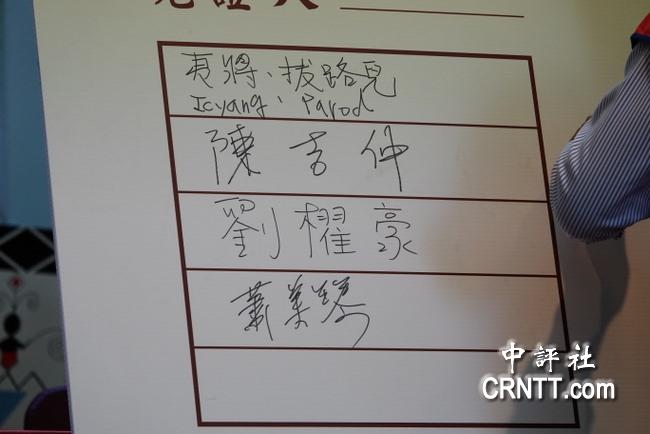 見證人
夷將、拔路兒
Icyang、Parod
陳吉仲
劉櫂豪
蕭美琴
中評社
CRNTT.com